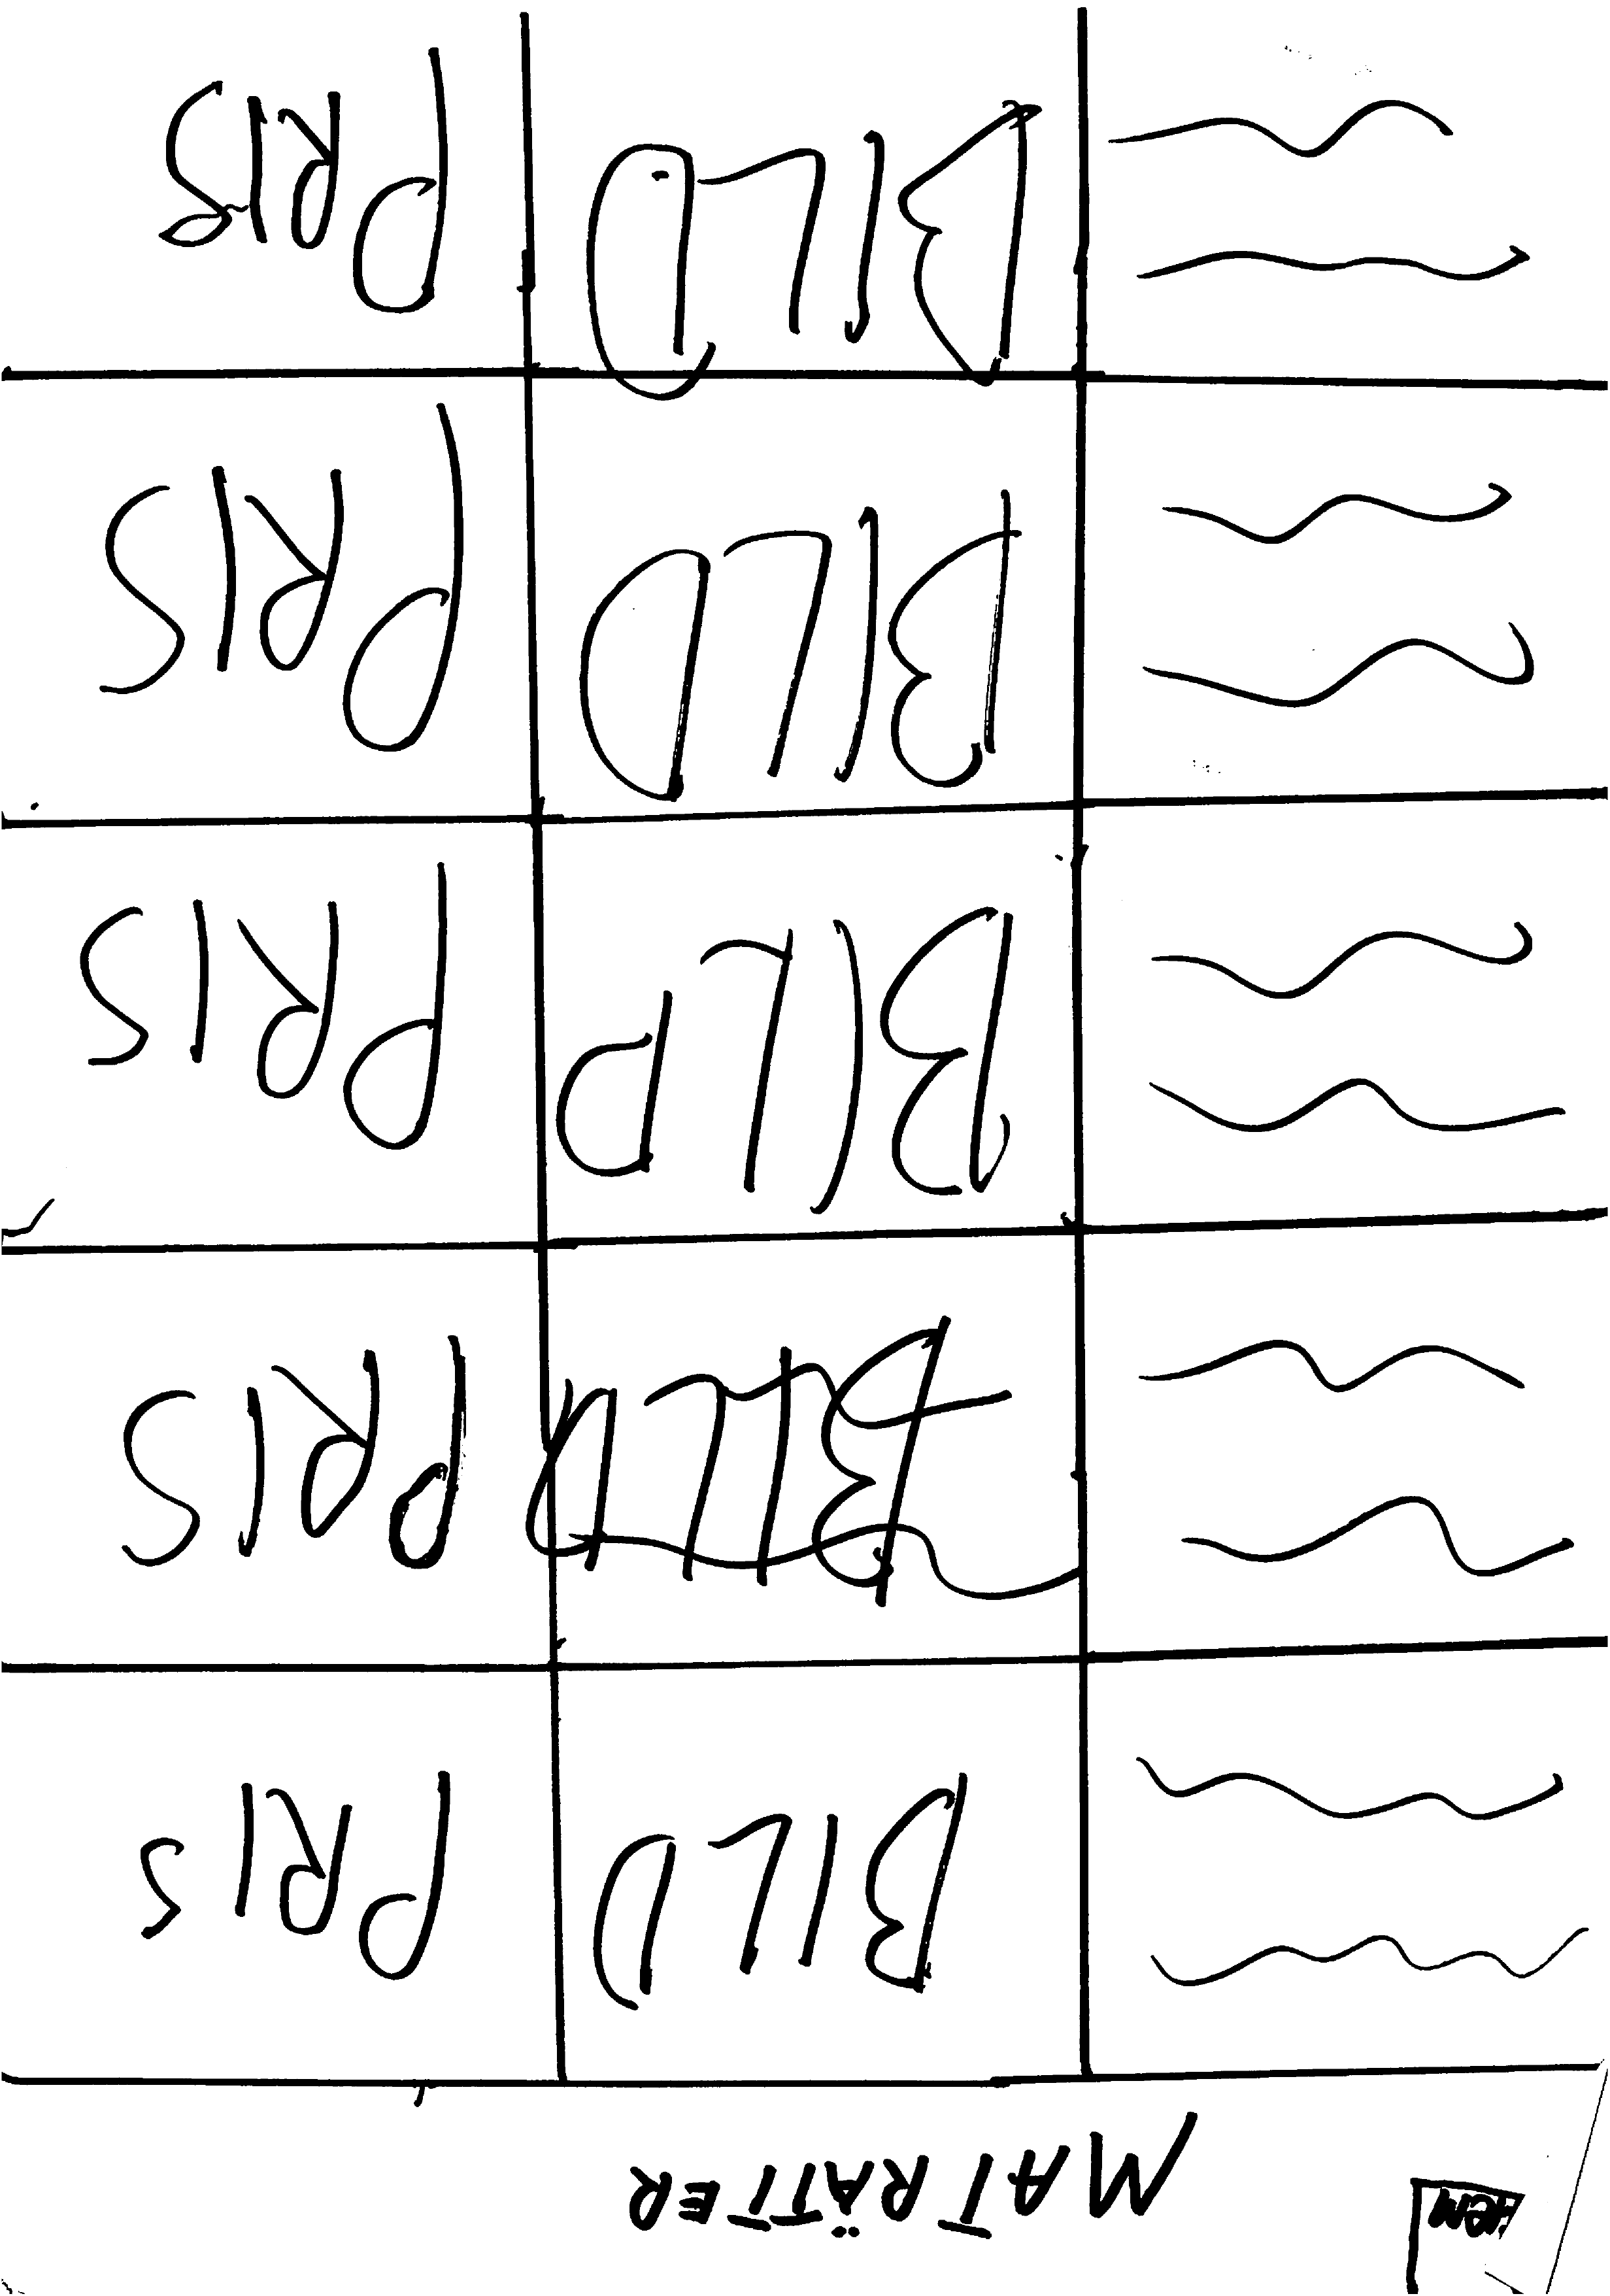 Hem MATRÄTTER
BILD PRIS
BILD PRIS
BILD PRIS
BILD PRIS
BILD PRIS